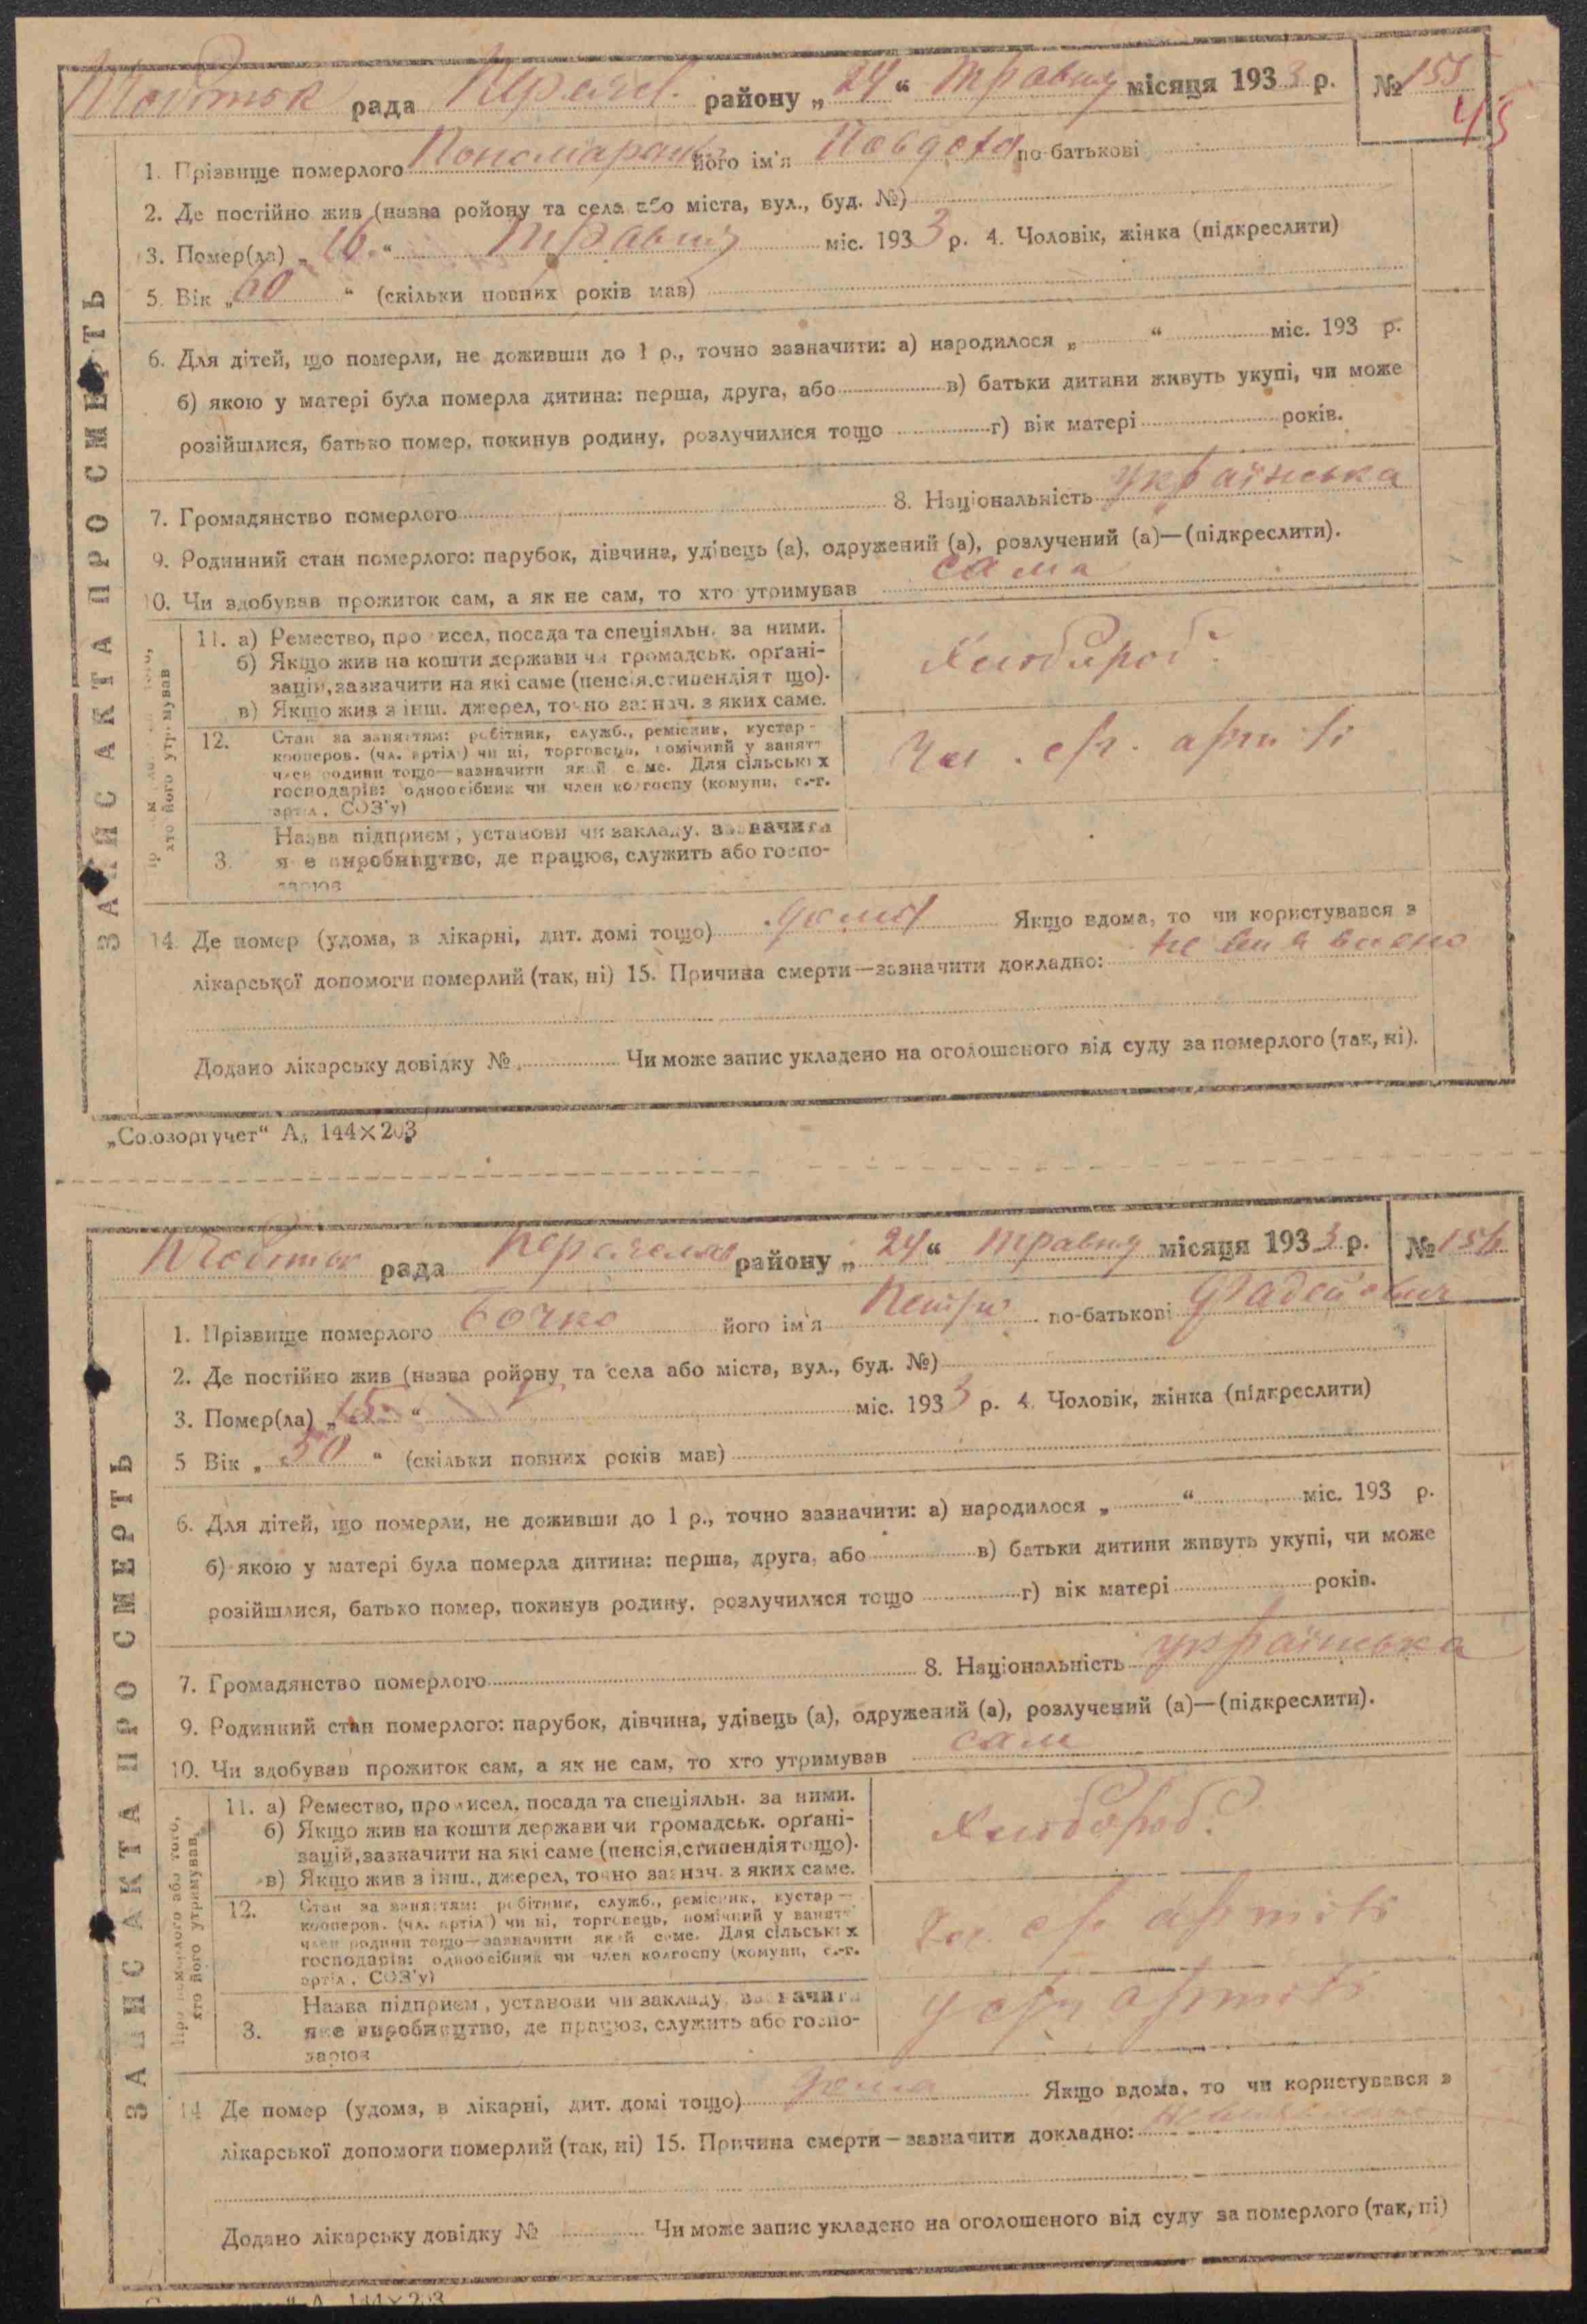 рада району „ 24 “ травня місяця 1933 р. № 155
45
1. Прізвище померлого його ім'я по-батькові
2. Де постійно жив (назва ройону та села або міста, вул., буд. №)
3. Помер(ла) „ 16 “ травня міс. 1933 р. 4. Чоловік, жінка (підкреслити)
5. Вік „ 60 “ (скільки повних років мав)
6. Для дітей, що померли, не доживши до 1 р., точно зазначити: а) народилося „ “ міс. 193 р.
б) якою у матері була померла дитина: перша, друга, або в) батьки дитини живуть укупі, чи може
розійшлися, батько помер, покинув родину, розлучилися тощо г) вік матері років.
7. Громадянство померлого 8. Національність українська
9. Родинний стан померлого: парубок, дівчина, удівець (а), одружений (а), розлучений (а)—(підкреслити).
10. Чи здобував прожиток сам, а як не сам, то хто утримував сама
11. а) Ремество, про исел, посада та спеціяльн. за ними. Хлібороб
б) Якщо жив на кошти держави чи громадськ. орґані-
зацій, зазначити на які саме (пенсія, стипендіят що).
в) Якщо жив з інш. джерел, точно зазнач. з яких саме.
12. Стан за заняттям: робітник, служб., ремісник, кустар-
кооперов. (чл. артіл) чи ні, торговець, помічний у занятт
член родини тощо—зазначити який саме. Для сільських
господарів: одноосібник чи член колгоспу (комуни, с.-г.
артіл, СОЗ'у)
Чл. с/г. артілі
3. Назва підприєм, установи чи закладу, зазначити
яке виробництво, де працює, служить або госпо-
дарює
14. Де помер (удома, в лікарні, дит. домі тощо) дома Якщо вдома, то чи користувався з
лікарської допомоги померлий (так, ні) 15. Причина смерти—зазначити докладно: не виявлено
Додано лікарську довідку № Чи може запис укладено на оголошеного від суду за померлого (так, ні).
ЗАПИС АКТА ПРО СМЕРТЬ
„Союзоргучет“ А5 144×203
рада району „ 24 “ травня місяця 1933 р. № 156
1. Прізвище померлого Бочко його ім'я Петро по-батькові Фадейович
2. Де постійно жив (назва ройону та села або міста, вул., буд. №)
3. Помер(ла) „ 15 “ V міс. 1933 р. 4. Чоловік, жінка (підкреслити)
5 Вік „ 50 “ (скільки повних років мав)
6. Для дітей, що померли, не доживши до 1 р., точно зазначити: а) народилося „ “ міс. 193 р.
б) якою у матері була померла дитина: перша, друга, або в) батьки дитини живуть укупі, чи може
розійшлися, батько помер, покинув родину, розлучилися тощо г) вік матері років.
7. Громадянство померлого 8. Національність українська
9. Родинний стан померлого: парубок, дівчина, удівець (а), одружений (а), розлучений (а)—(підкреслити).
10. Чи здобував прожиток сам, а як не сам, то хто утримував сам
11. а) Ремество, про исел, посада та спеціяльн. за ними. Хлібороб
б) Якщо жив на кошти держави чи громадськ. орґані-
зацій, зазначити на які саме (пенсія, стипендія тощо).
в) Якщо жив з інш., джерел, точно зазнач. з яких саме.
Про померлого або того,
хто його утримував
12. Стан за заняттям: робітник, служб., ремісник, кустар—
кооперов. (чл. артіл) чи ні, торговець, помічний у занятт
член родини тощо—зазначити який саме. Для сільських
господарів: одноосібник чи член колгоспу (комуни, с.-г.
артіл, СОЗ'у)
Чл. с/г артілі
3. Назва підприєм, установи чи закладу, зазначити
яке виробництво, де працює, служить або госпо-
дарює
у с/г артілі
14 Де помер (удома, в лікарні, дит. домі тощо) дома Якщо вдома, то чи користувався з
лікарської допомоги померлий (так, ні) 15. Причина смерти—зазначити докладно: не виявлено
Додано лікарську довідку № Чи може запис укладено на оголошеного від суду за померлого (так, ні)
ЗАПИС АКТА ПРО СМЕРТЬ